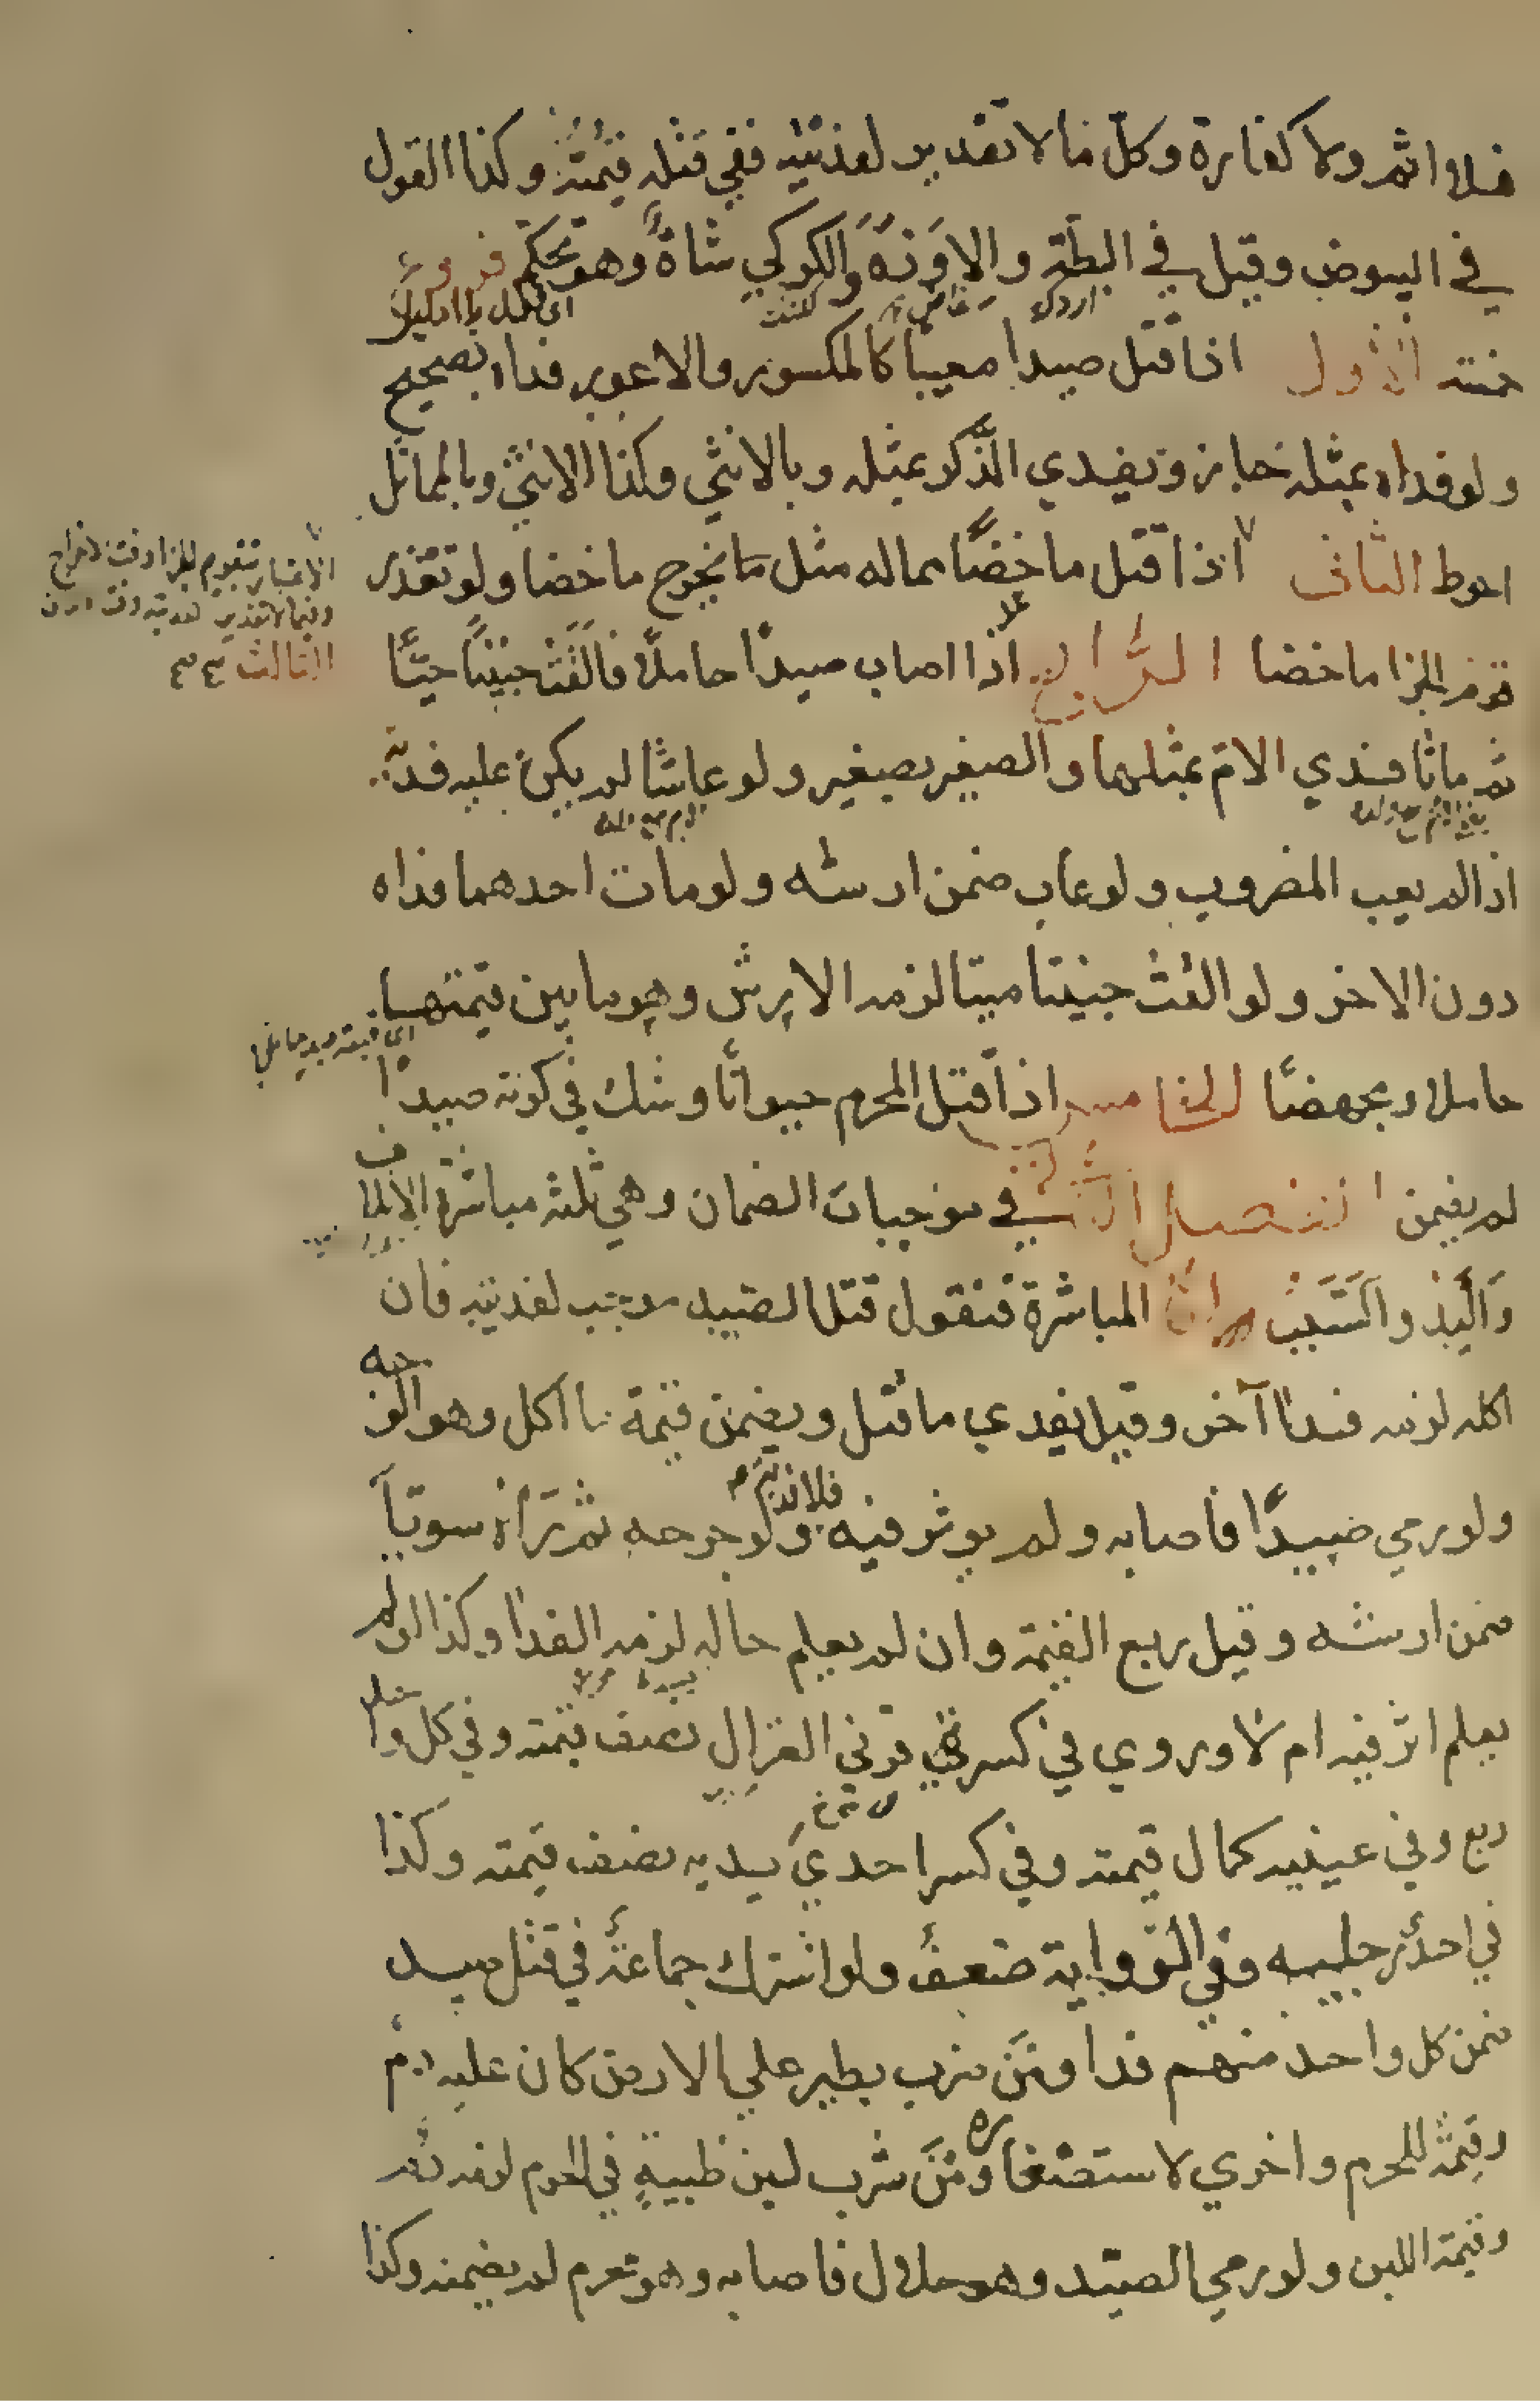 فلا اثم ولا كفارة وكل ما لا تقدير لفديته ففي قتله قيمته وكذا القول
في البيوض وقيل في البطة والاوزة والكركي شاة وهو تحكم فروع
خمسة الاول اذا قتل صيدا معيبا كالمكسور والاعور فداه بصحيح
ولو فداه بمثله جاز وتفيدي الذكر بمثله وبالانثي وكذا الانثي وبالمماثل
احوط الثاني اذا قتل ماخضا مماله مثل يخرج ماخضا ولو تعذر
الاعتبار بتقويم الجزا وقت الاخراج
وفيما لا تقدير لفديته وقت
الثالث
قوم الجزا ماخضا الرابع اذا اصاب صيدا حاملا فالقت جنينا حيا
ثم ماتا فدي الام بمثلها والصغير بصغير ولو عاشا لم يكن عليه فدية
اذا لم يعب المضروب ولو عاب ضمن ارشه ولو مات احدهما فداه
دون الاخر ولو القت جنينا ميتا لزمه الارش وهو ما بين قيمتها
حاملا ومجهضا الخامس اذا قتل المحرم حيوانا وشك في كونه صيدا
لم يضمن الفصل الثاني في موجبات الضمان وهي ثلثه مباشرة الاتلاف
واليد والتسبب اما المباشرة فنقول قتل الصيد موجب لفديته فان
اكله لزمه فدا آخر وقيل يفدي ما قتل ويضمن قيمة ما اكل وهو الوجه
ولو رمي صيدا فاصابه ولم يوثر فيه فلا فدية ولو جرحه ثم رآه سويا
ضمن ارشه وقيل ربع القيمة وان لم يعلم حاله لزمه الفدا وكذا لو لم
يعلم اثر فيه ام لا وروي في كسر قرني الغزال نصف قيمته وفي كل واحد
ربع وفي عينيه كمال قيمته وفي كسر احدي يديه نصف قيمته وكذا
في احدي رجليه وفي الرواية ضعف ولو اشترك جماعة في قتل صيد
ضمن كل واحد منهم فدا ومن ضرب بطير علي الارض كان عليه دم
وقيمة للحرم واخري لاستصغاره ومن شرب لبن ظبية في الحرم لزمه دم
وقيمة اللبن ولو رمي الصيد وهو حلال فاصابه وهو محرم لم يضمنه وكذا